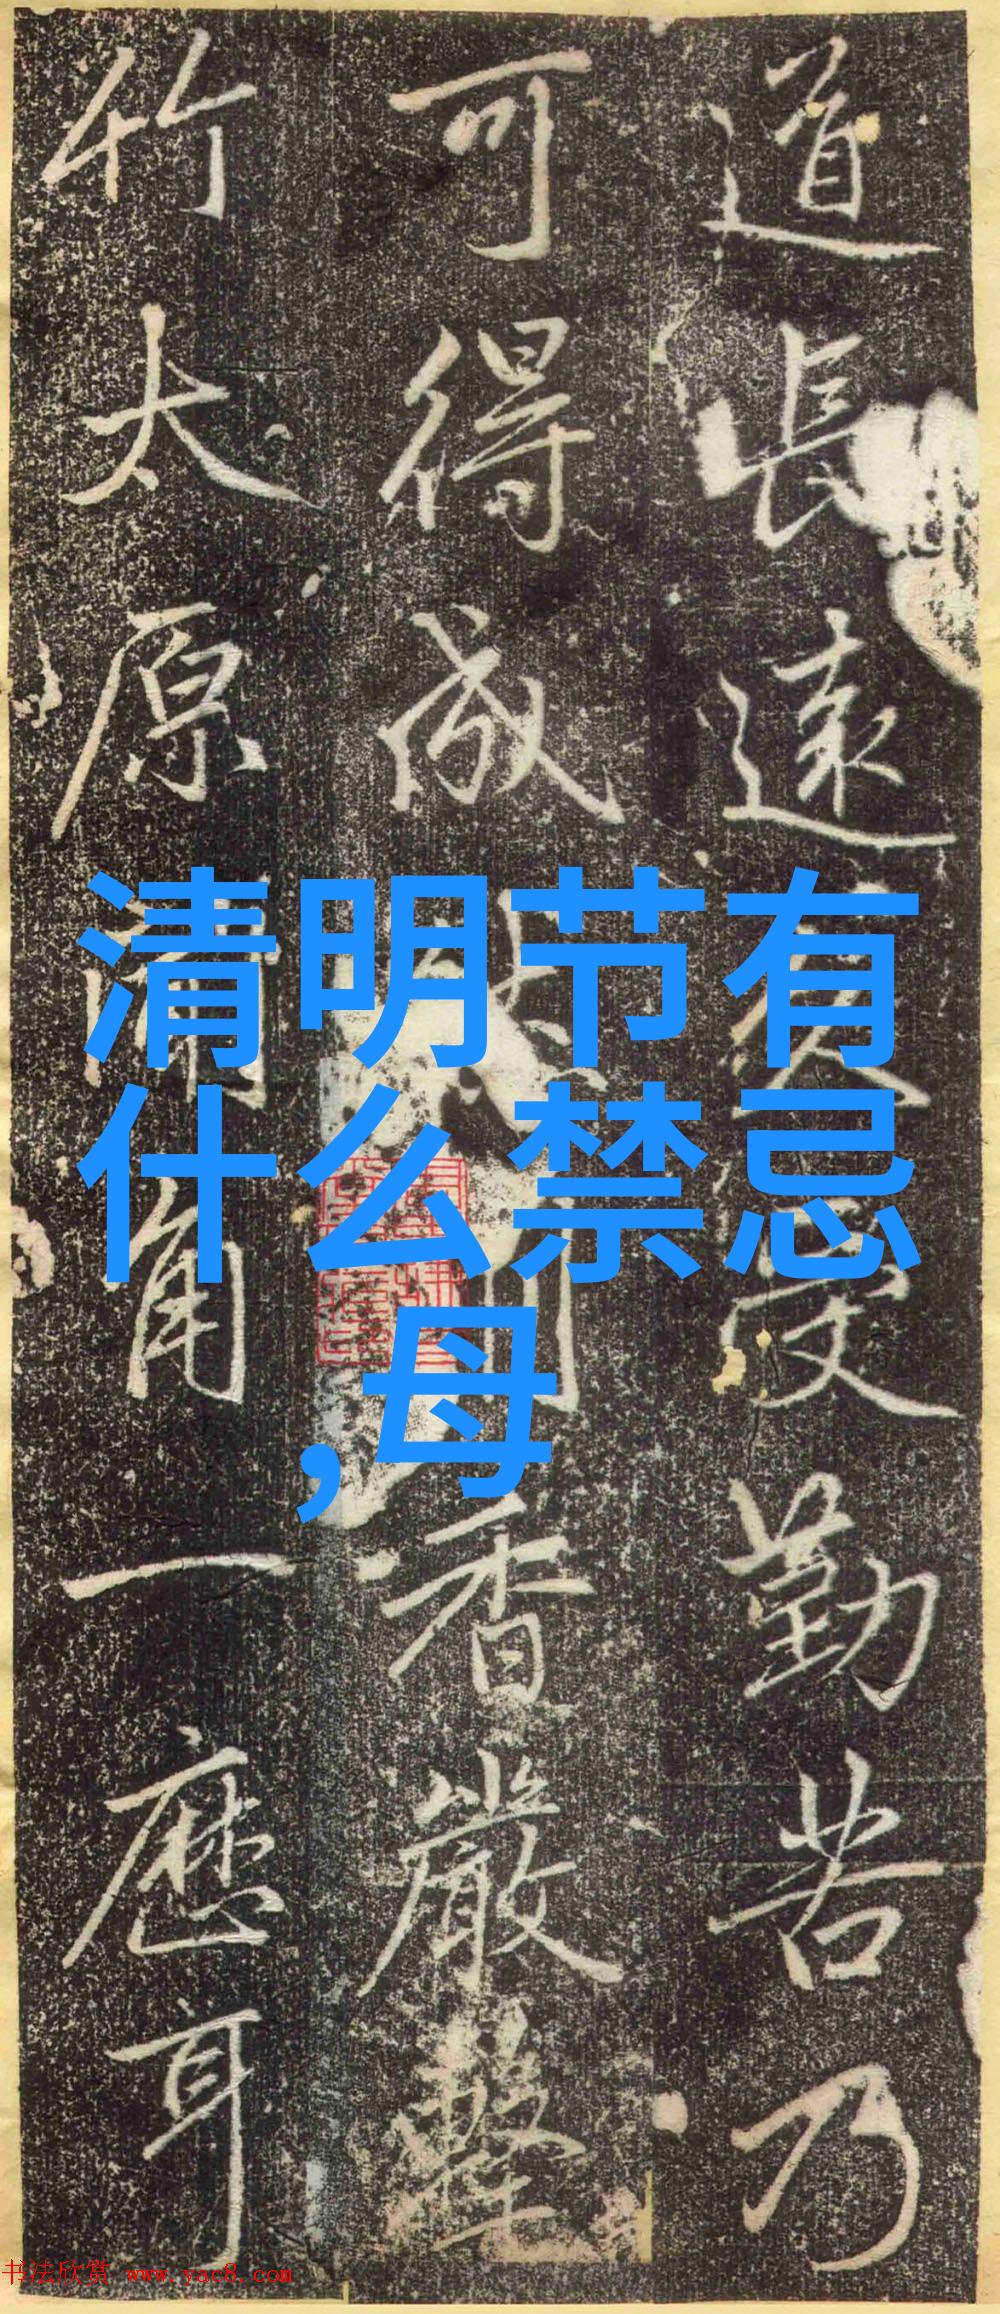 道長遠後受勤苦乃
可得成
香嚴擊
竹大原
角一應耳
清明节有
什么禁忌
,母
书法欣赏 www.yac8.com